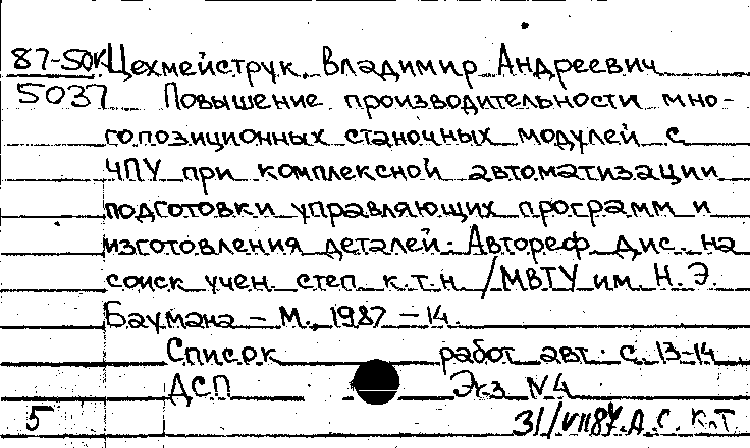 87-50к Цехмейструк, Владимир Андреевич
5037 Повышение производительности мно-
гопозиционных станочных модулей с
ЧПУ при комплексной автоматизации
подготовки управляющих программ и
изготовления деталей. Автореф. дис. на
соиск учен. степ. к.т.н. /МВТУ им. Н.Э.
Баумана – М., 1987 – 14.
Список работ авт. с. 13-14
ДСП Экз N4
5 31/VII87. Д.С. К.Т